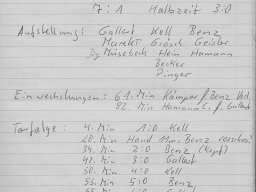 7:1 Halbzeit 3:0
Aufstellung: Gallert Kell Benz
Grösch Geisler
Hein Hamann
Becker
Dinger
Einwechslungen: 61. Min Kämper f. Benz
82. Min Hamann f. Gallert
Torfolge: 4. Min 1:0 Kell
20. Min Hand Benz
34. Min 2:0 Benz (Kopf)
42. Min 3:0 Gallert
50. Min 4:0 Kell
55. Min 5:0 Benz